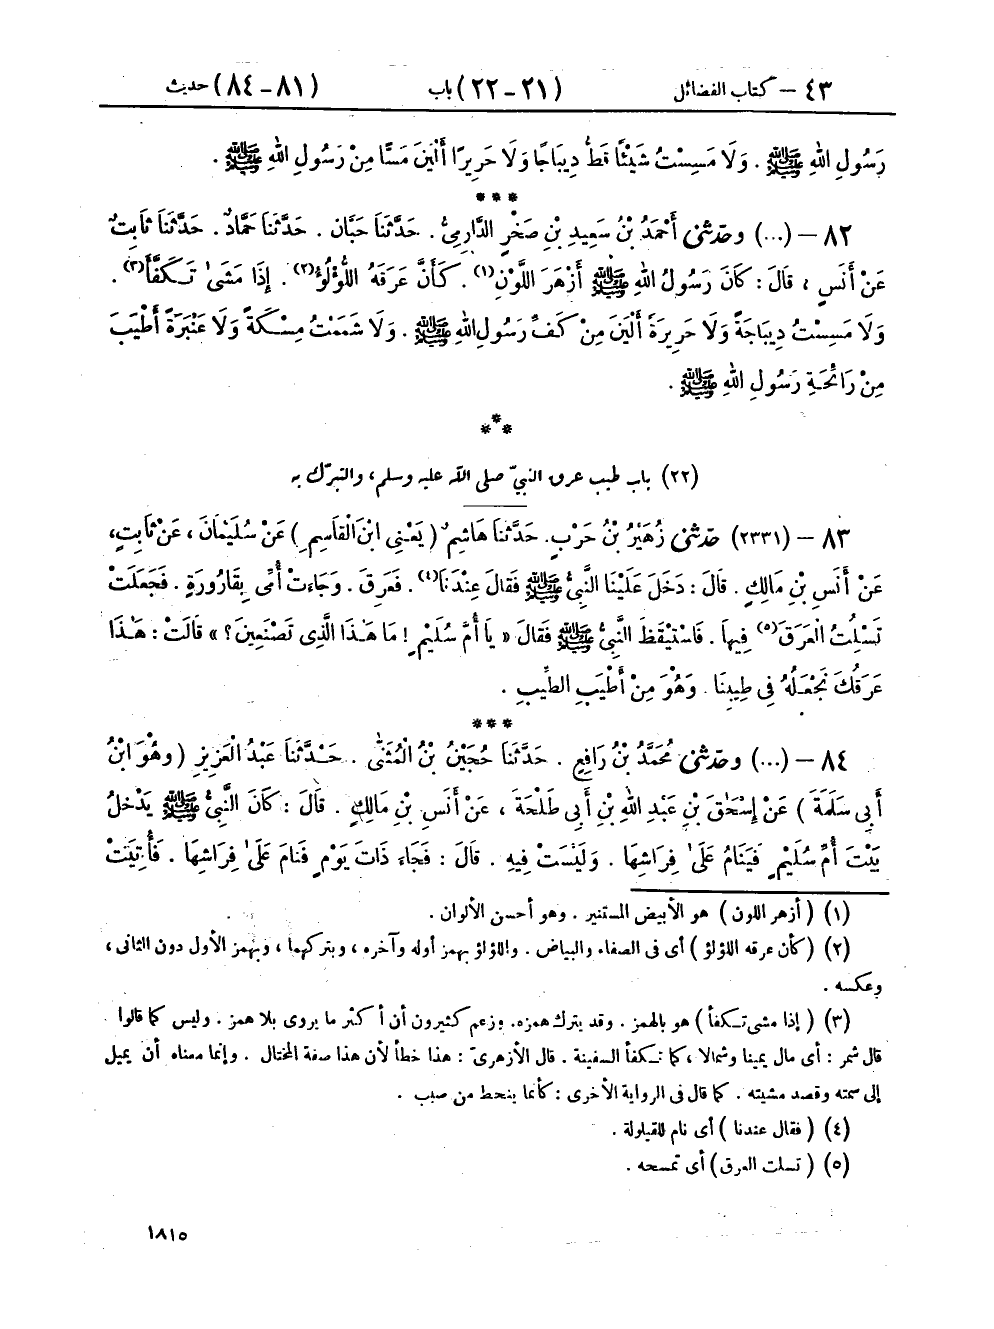 ٤٣ – كتاب الفضائل (٢١–٢٢) باب (٨١–٨٤) حديث
رَسُولِ اللهِ ﷺ . وَلَا مَسِسْتُ شَيْئًا قَطُّ دِيبَاجًا وَلَا حَرِيرًا أَلْيَنَ مَسًّا مِنْ رَسُولِ اللهِ ﷺ .
***
٨٢ – (...) وحَدَّثَنِي أَحْمَدُ بْنُ سَعِيدِ بْنِ صَخْرٍ الدَّارِمِيُّ . حَدَّثَنَا حَبَّان . حَدَّثَنَا حَمَّادٌ . حَدَّثَنَا ثَابِتٌ
عَنْ أَنَسٍ ، قَالَ : كَانَ رَسُولُ اللهِ ﷺ أَزْهَرَ اللَّوْنِ(١) . كَأَنَّ عَرَقَهُ اللُّؤْلُؤُ(٢) . إِذَا مَشَىٰ تَكَفَّأَ(٣) .
وَلَا مَسِسْتُ دِيبَاجَةً وَلَا حَرِيرَةً أَلْيَنَ مِنْ كَفِّ رَسُولِ اللهِ ﷺ . وَلَا شَمَمْتُ مِسْكَةً وَلَا عَنْبَرَةً أَطْيَبَ
مِنْ رَائِحَةِ رَسُولِ اللهِ ﷺ .
***
(٢٢) باب طيب عرق النبيّ صلى الله عليه وسلم، والتبرّك به
٨٣ – (٢٣٣١) حَدَّثَنِي زُهَيْرُ بْنُ حَرْبٍ. حَدَّثَنَا هَاشِمٌ ( يَعْنِي ابْنَ الْقَاسِمِ ) عَنْ سُلَيْمَانَ ، عَنْ ثَابِتٍ،
عَنْ أَنَسِ بْنِ مَالِكٍ . قَالَ : دَخَلَ عَلَيْنَا النَّبِيُّ ﷺ فَقَالَ عِنْدَنَا(٤) . فَعَرِقَ . وَجَاءَتْ أُمِّي بِقَارُورَةٍ . فَجَعَلَتْ
تَسْلِتُ الْعَرَقَ(٥) فِيهَا . فَاسْتَيْقَظَ النَّبِيُّ ﷺ فَقَالَ « يَا أُمَّ سُلَيْمٍ ! مَا هَذَا الَّذِي تَصْنَعِينَ ؟ » قَالَتْ : هَذَا
عَرَقُكَ نَجْعَلُهُ فِي طِيبِنَا . وَهُوَ مِنْ أَطْيَبِ الطِّيبِ .
***
٨٤ – (...) وحَدَّثَنِي مُحَمَّدُ بْنُ رَافِعٍ . حَدَّثَنَا حُجَيْنُ بْنُ الْمُثَنَّى . حَدَّثَنَا عَبْدُ الْعَزِيزِ ( وَهُوَ ابْنُ
أَبِي سَلَمَةَ ) عَنْ إِسْحَاقَ بْنِ عَبْدِ اللهِ بْنِ أَبِي طَلْحَةَ ، عَنْ أَنَسِ بْنِ مَالِكٍ . قَالَ : كَانَ النَّبِيُّ ﷺ يَدْخُلُ
بَيْتَ أُمِّ سُلَيْمٍ فَيَنَامُ عَلَىٰ فِرَاشِهَا . وَلَيْسَتْ فِيهِ . قَالَ : فَجَاءَ ذَاتَ يَوْمٍ فَنَامَ عَلَىٰ فِرَاشِهَا . فَأُتِيَتْ
(١) ( أزهر اللون ) هو الأبيض المستنير . وهو أحسن الألوان .
(٢) ( كأن عرقه اللؤلؤ ) أى فى الصفاء والبياض . واللؤلؤ بهمز أوله وآخره ، وبتركهما ، وبهمز الأول دون الثانى ،
وعكسه .
(٣) ( إذا مشى تكفأ ) هو بالهمز . وقد يترك همزه. وزعم كثيرون أن أكثر ما يروى بلا همز . وليس كما قالوا
قال شمر : أى مال يمينا وشمالا ، كما تكفأ السفينة . قال الأزهرىّ : هذا خطأ لأن هذا صفة المختال . وإنما معناه أن يميل
إلى سمته وقصد مشيته . كما قال فى الرواية الأخرى : كأنما ينحط من صبب .
(٤) ( فقال عندنا ) أى نام للقيلولة .
(٥) ( تسلت العرق) أى تمسحه .
١٨١٥